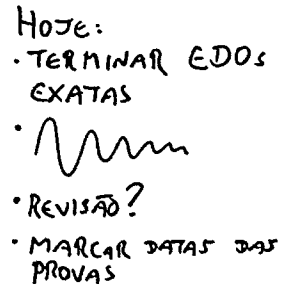 HOJE:
· TERMINAR EDOs
EXATAS
·
· REVISÃO?
· MARCAR DATAS DAS
PROVAS